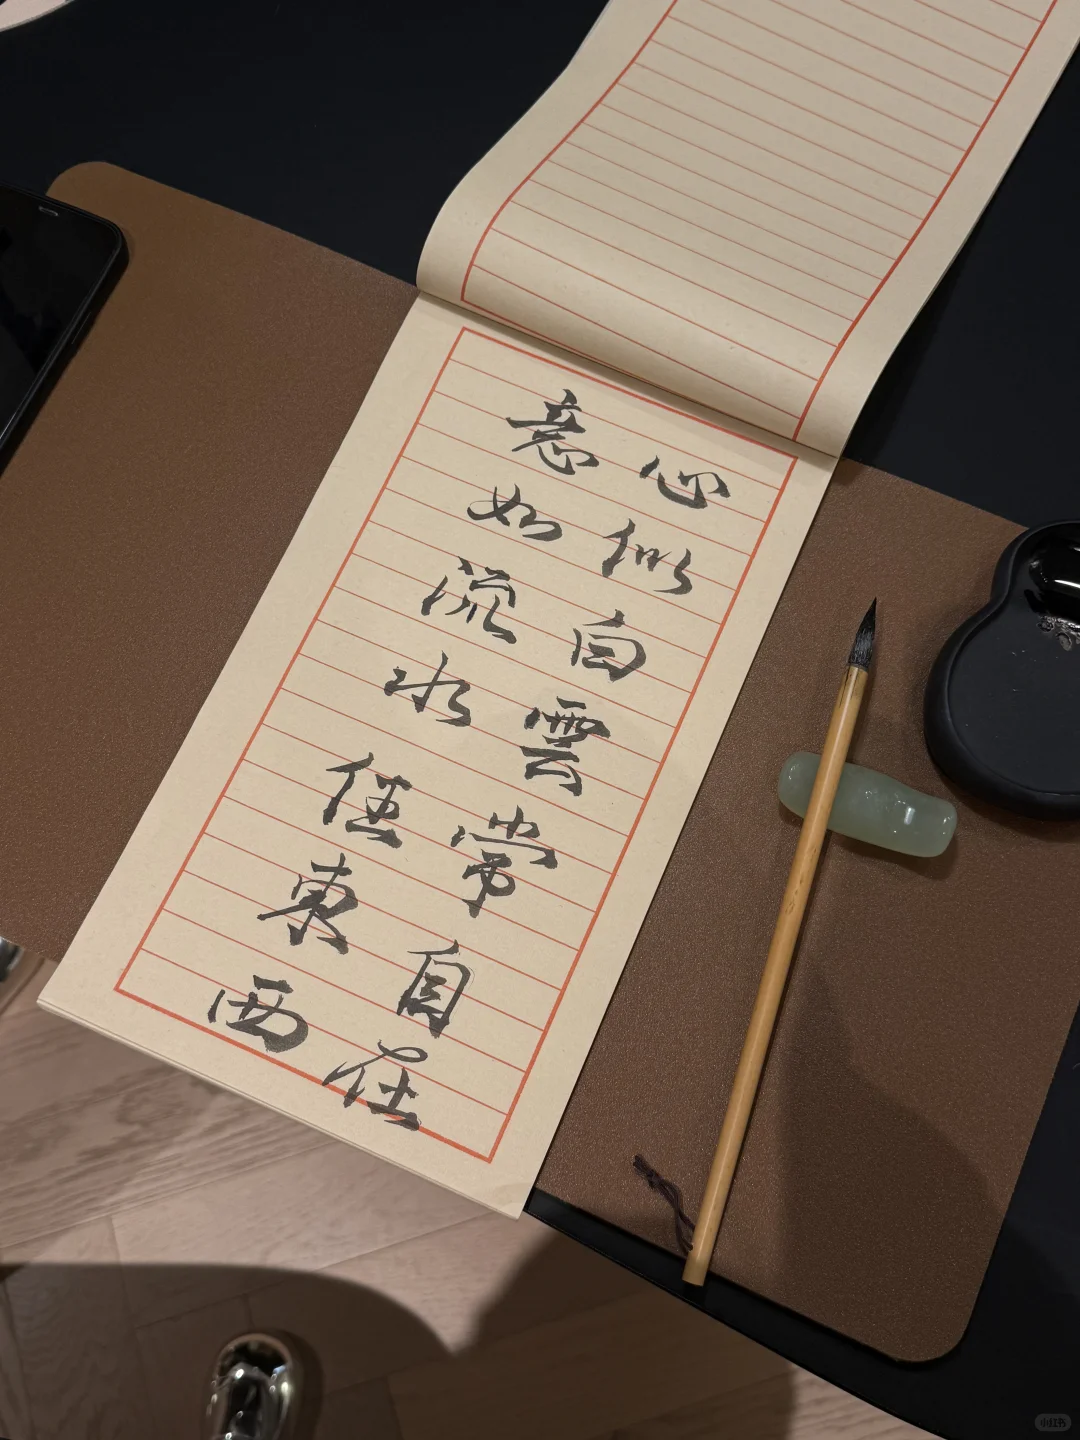 心似白雲常自在
意如流水任東西
小红书